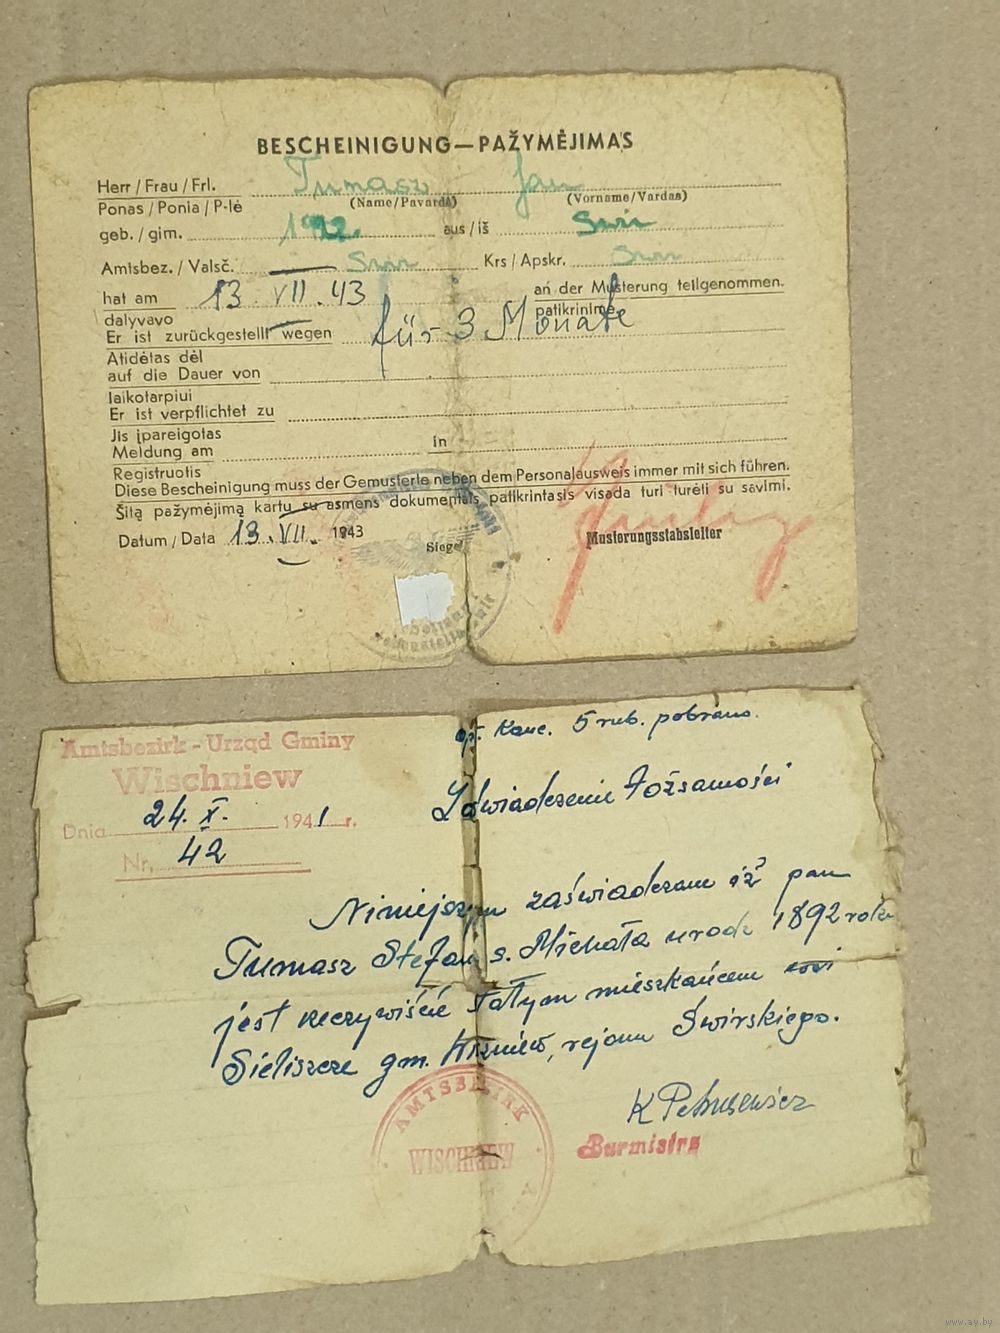 BESCHEINIGUNG—PAŽYMĖJIMAS
Herr / Frau / Frl. Tumasz Jan
Ponas / Ponia / P-lė (Name/Pavardė) (Vorname/Vardas)
geb. / gim. aus / iš Swir
Amtsbez. / Valsč. Swir Krs / Apskr. Swir
hat am 13. VII. 43 an der Musterung teilgenommen.
dalyvavo patikrinime
Er ist zurückgestellt wegen für 3 Monate
Atidėtas dėl
auf die Dauer von
laikotarpiui
Er ist verpflichtet zu
Jis įpareigotas
Meldung am in
Registruotis
Diese Bescheinigung muss der Gemusterte neben dem Personalausweis immer mit sich führen.
Šitą pažymėjimą kartu su asmens dokumentais patikrintasis visada turi turėti su savimi.
Datum / Data 13. VII. 1943
Siegel
Musterungsstabsleiter
op. kanc. 5 rub. pobrano.
Amtsbezirk - Urząd Gminy
Wischniew
Dnia 24. X. 1941 r.
Nr. 42
Zaświadczenie tożsamości
Niniejszym zaświadczam iż pan
Tumasz Stefan s. Michała urodz 1892 roku
jest rzeczywiście stałym mieszkańcem wsi
Sieliszcze gm. Wiszniew, rejonu Świrskiego.
K Petrusewicz
Burmistrz
AMTSBEZIRK
WISCHNIEW
www.ay.by